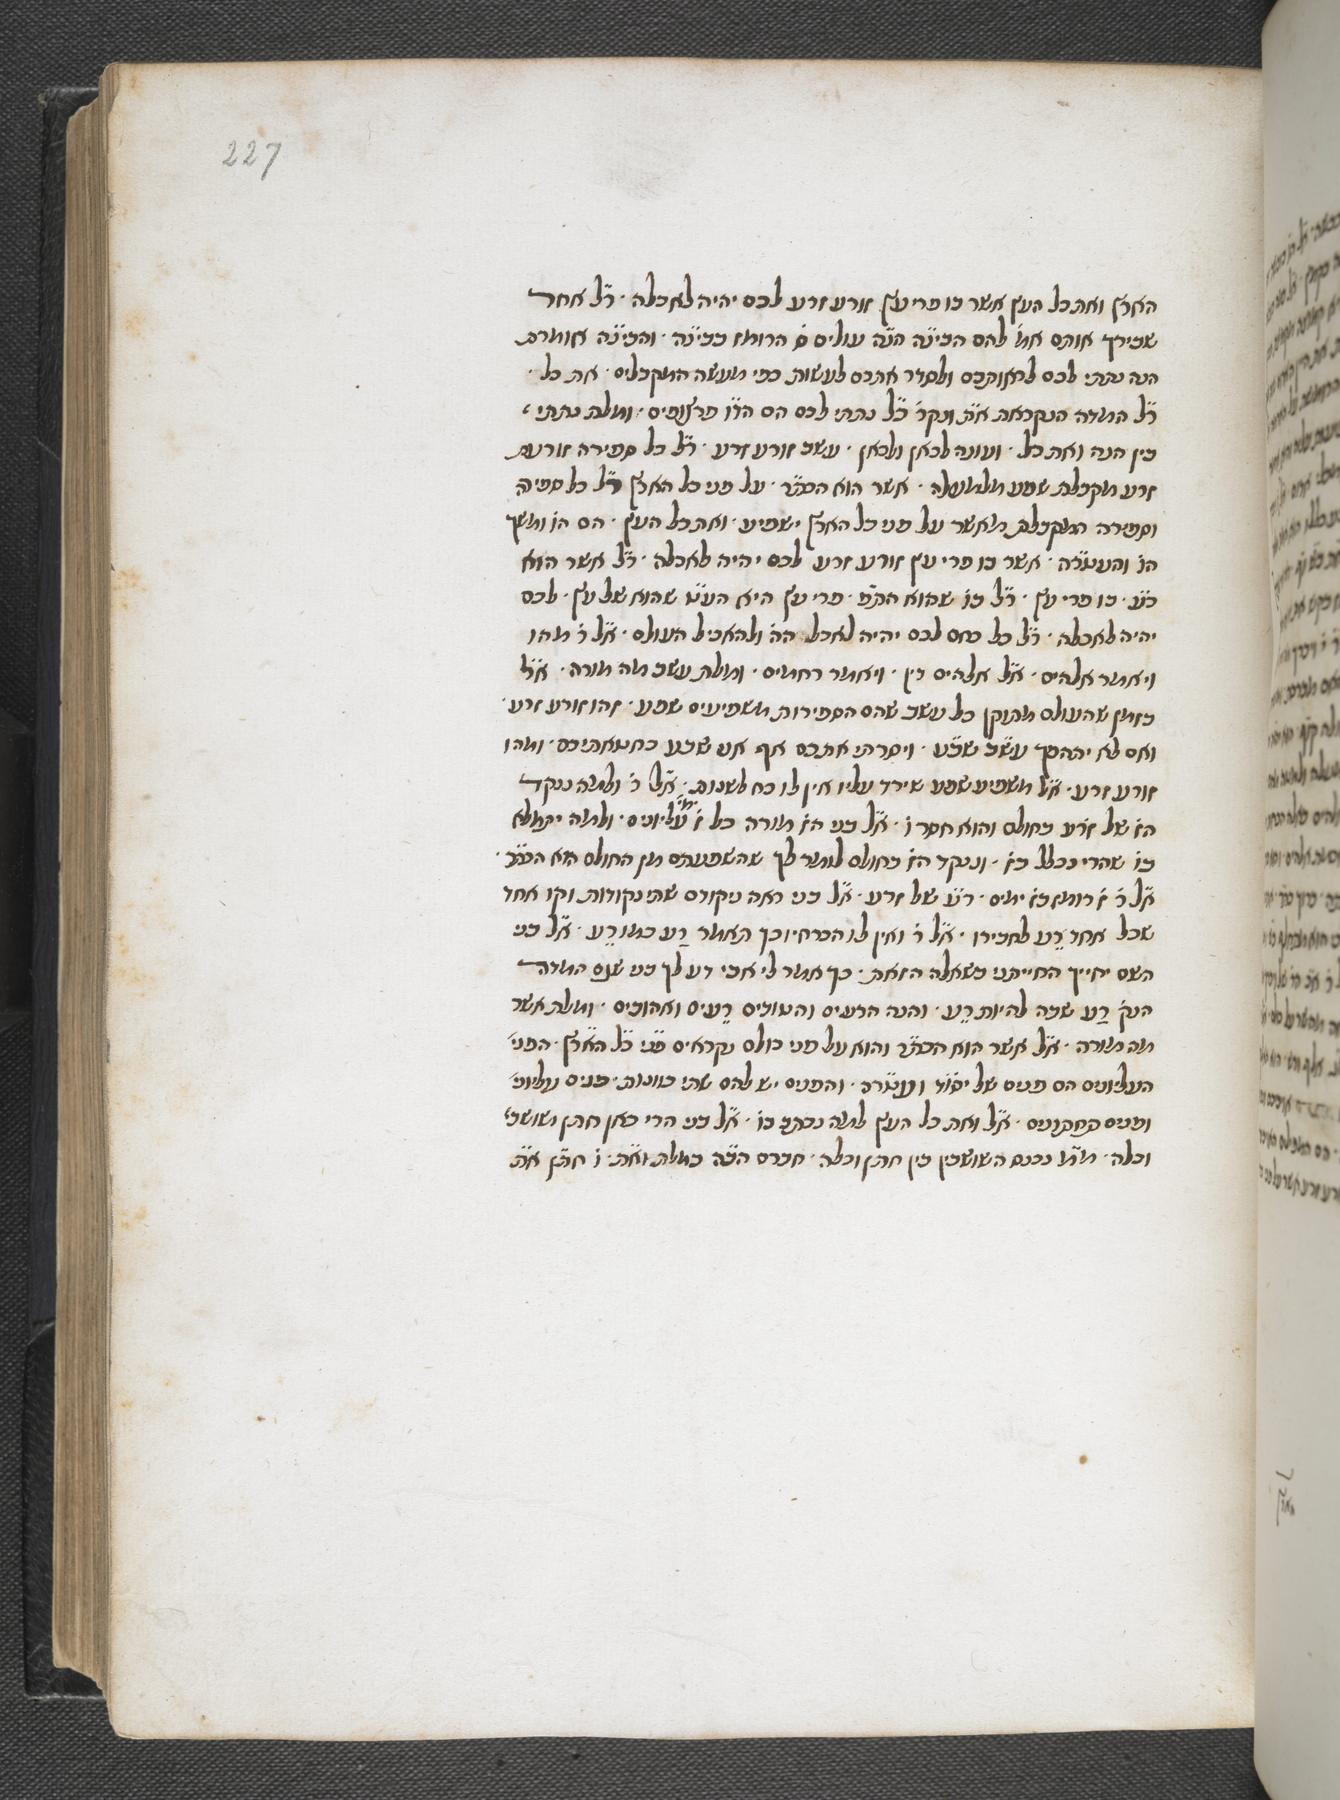 227
הארץ ואת כל העץ אשר בו פרי עץ זורע זרע לכם יהיה לאכלה · ר״ל אחר
שבירך אותם את׳ להם הבינ״ה הנ״ה עולים ס׳ הרומז בבינ״ה · והבינ״ה אומרת
הנה נתתי לכם לראותכם ולסדר אתכם לעשות כפי מעשה המקבלים · את כל ·
ר״ל המדה הנקראת א״ת ונקר׳ כ״ל נתתי לכם הם הד״ו פרצופים · ומלת נתתי
בין הנה ואת כל · ועונה לכאן ולכאן · עשב זורע זרע · ר״ל כל ספירה זורעת
זרע מקבלת שפע מלמעלה · אשר הוא הכת״ר · על פני כל הארץ ר״ל כל ספיר׳
וספירה המקבלת מאשר על פני כל הארץ ישפיע · ואת כל העץ · הם הו׳ ומשך
הו׳ והעטר״ה · אשר בו פרי עץ זורע זרע לכם יהיה לאכלה · ר״ל אשר הוא
כת״ר · בו פרי עץ · ר״ל בו׳ שהוא הת״ת · פרי עץ היא העט׳ שהוא של עץ · לכם
יהיה לאכלה · ר״ל כל כחם לכם יהיה לאכל הה׳ ולהאכיל העולם · א״ל ר׳ מהו
ויאמר אלהים · א״ל אלהים דין · ויאמר רחמים · ומלת עשב מה מורה · א״ל
בזמן שהעולם מתוקן כל עשב שהם הספירות משפיעים שפע · זהו זורע זרע ·
ואם לא יתהפך עש״ב שב״ע · ויסרתי אתכם אף אני שבע כחטאתיכם · ומהו
זורע זרע · א״ל משפיע שפע שירד עליו אין לו כח לשנות · א״ל ר׳ ולמה ננקד
הז׳ של זר״ע בחולם והוא חסר ו׳ · א״ל בני הז׳ מורה כל ז׳ עליונים · ולמה יתמלא
בו׳ שהרי נכלל בז׳ · וננקד הז׳ בחולם לומר לך שהשפעתם מן החולם הוא הכת״ר ·
א״ל ר׳ ז׳ רומז בז׳ ימים · ר״ע של זרע · א״ל בני ראה ניקודם שתי נקודות וקו אחד
שכל אחד רֵע לחבירו · א״ל ר׳ ואין לו הכרח וכך תאמר רַע כמו רֵע · א״ל בני
השם יחייך החייתני בשאלה הזאת · כך אמר לי אבי דע לך בני שגם המדה
הנק׳ רַע שבה להיות רֵע · והנה הרעים והטובים רֵעים ואהובים · ומלת אשר
מה מורה · א״ל אשר הוא הכת״ר והוא על פני כולם נקראים פנ״י כ״ל האר״ץ · הפני׳
העליונים הם פנים של יסו״ד ועטר״ה · והפנים יש להם שתי כוונות · פנים עליוני׳
ופנים תחתונים · א״ל ואת כל העץ למה נכתב בו׳ · א״ל בני הרי כאן חתן ושושבי׳
וכלה · מ״מ נכנס השושבין בין חתן וכלה · חברם הב״ה במלת וא״ת · ו׳ חתן א״ת